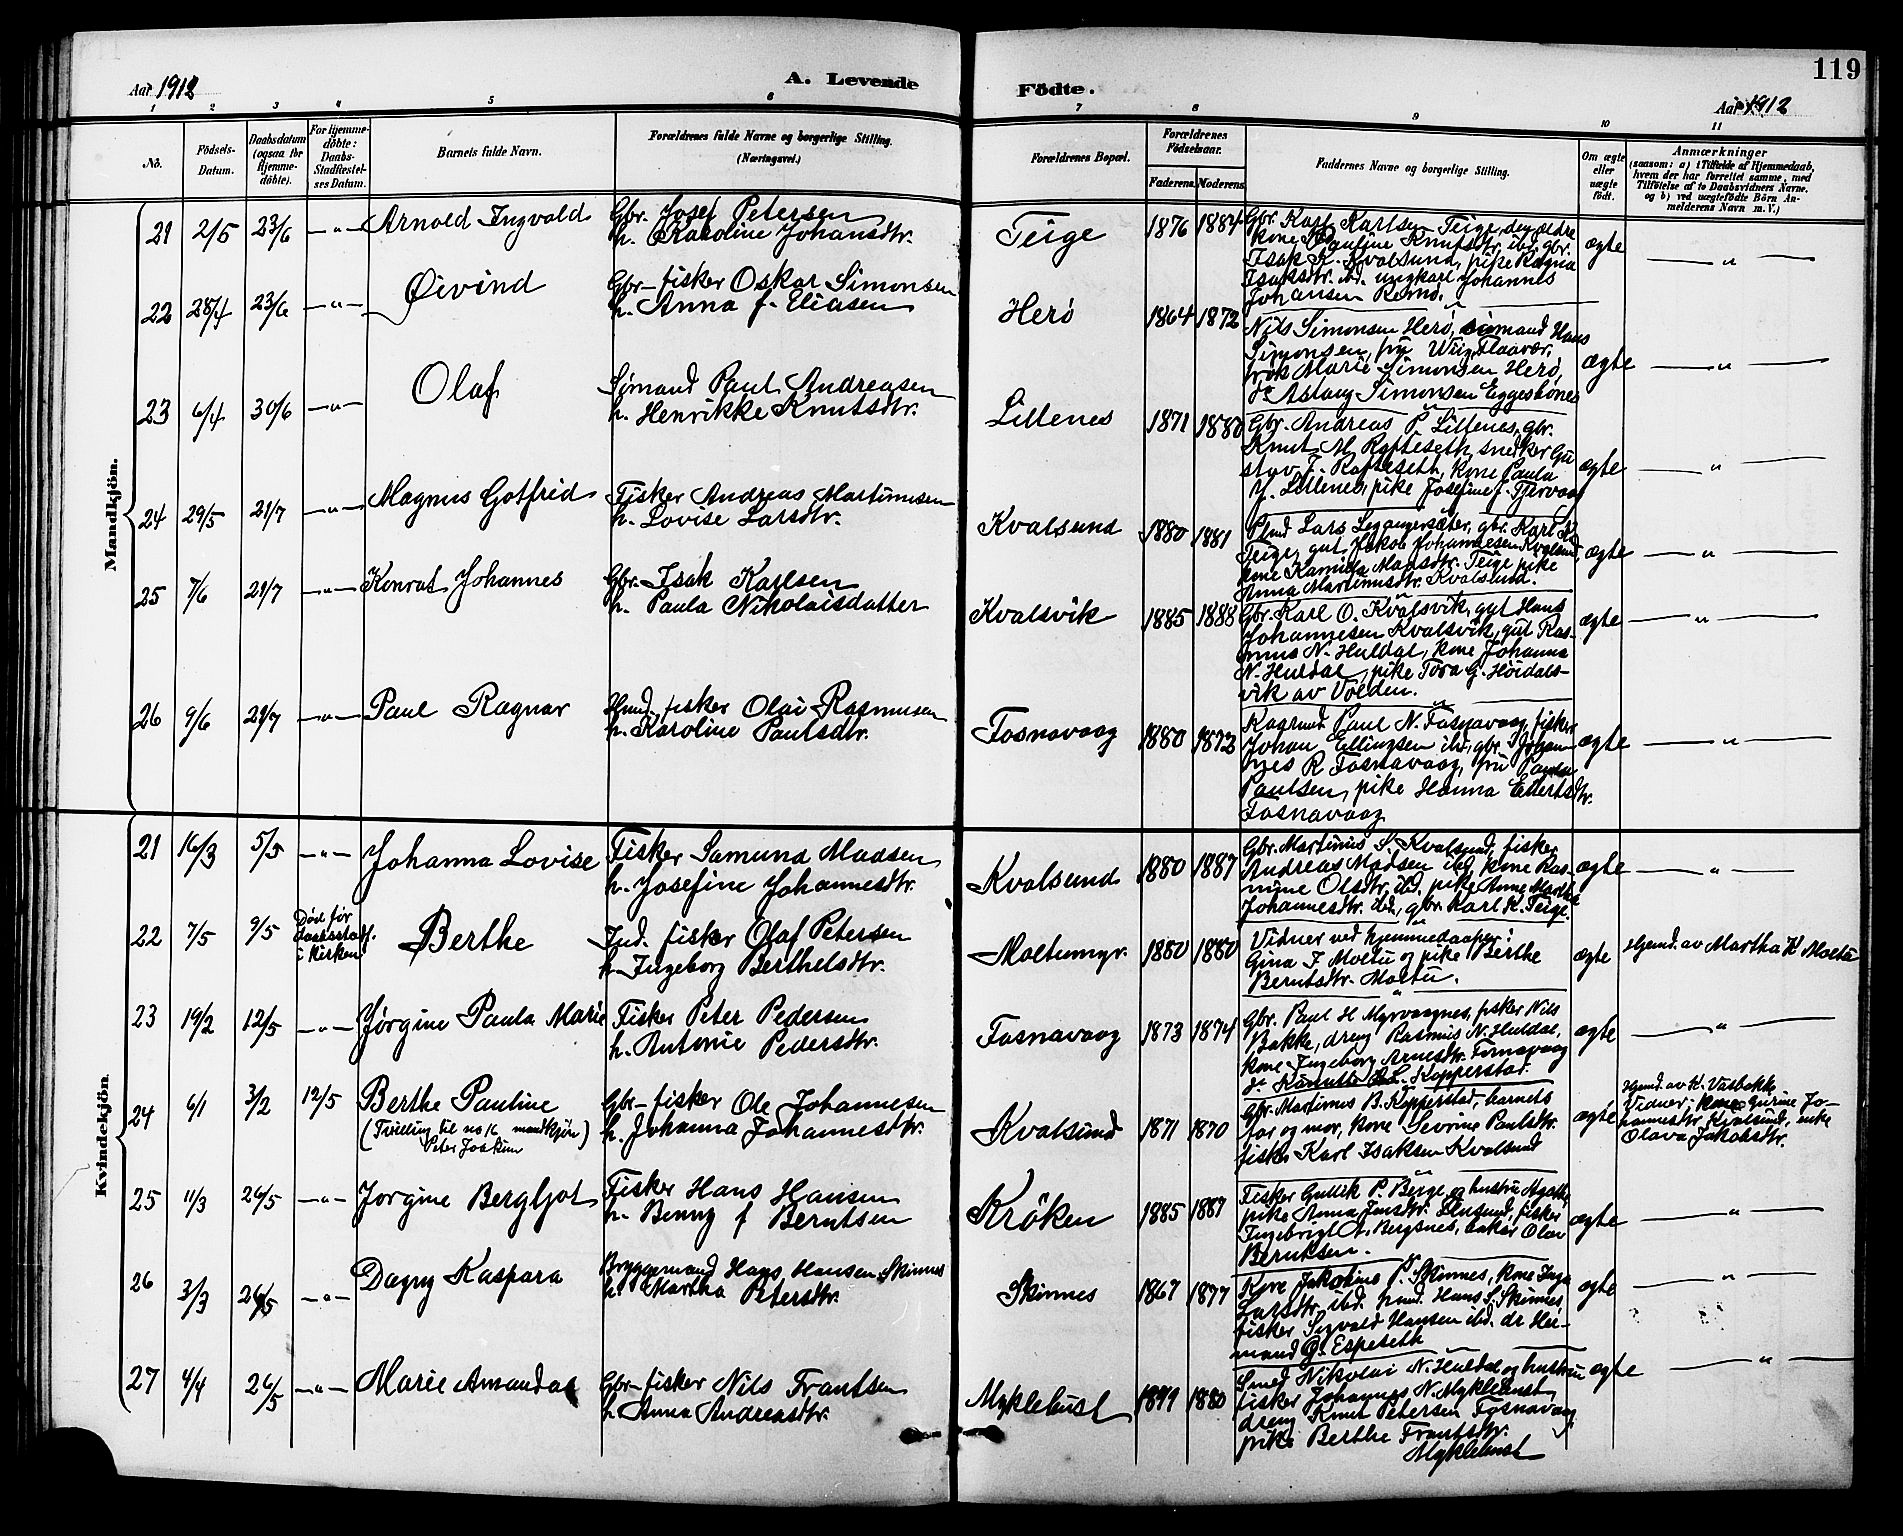 119
Aar 1912
A. Levende
Födte.
Aar 1912
1 2 3 4 5 6 7 8 9 10 11
No.
Födsels-
Datum.
Daabsdatum
(ogsaa for
Hjemme-
döbte).
For Hjemme-
döbte:
Daabs-
Stadfæstel-
ses Datum.
Barnets fulde Navn.
Forældrenes fulde Navne og borgerlige Stilling.
(Næringsvei.)
Forældrenes Bopæl.
Forældrenes
Födselsaar.
Faderens. Moderens.
Faddernes Navne og borgerlige Stilling.
Om ægte
eller
uægte
födt.
Anmærkninger
(saasom: a) i Tilfælde af Hjemmedaab,
hvem der har forrettet samme, med
Tilföielse af to Daabsvidners Navne.
og b) ved uægtefödte Börn An-
melderens Navn m. V.)
Mandkjön.
21 2/5 23/6 —"— Arnold Ingvald
Gbr. Josef Petersen
h. Karoline Johansdtr.
Teige 1876 1884
Gbr. Karl Karlsen Teige den ældre
kone Pauline Knutsdtr. ibd, gbr.
Isak K. Kvalsund, pike Ragna
Isaksdtr. ibd. ungkarl Johannes
Johansen Remø.
ægte — " —
22 28/4 23/6 —"— Øivind
Gbr-fisker Oskar Simonsen
h. Anna f. Eliasen
Herø 1864 1872
Nils Simonsen Herø, sømand Hans
Simonsen, fru Wiig, Flaavær,
frøk Marie Simonsen Herø,
do Astaug Simonsen Eggesbønes
ægte — " —
23 6/4 30/6 —"— Olaf
Sømand Paul Andreasen
h. Henrikke Knutsdtr.
Lillenes 1871 1880
Gbr. Andreas P. Lillenes, gbr.
Knut M. Røfteseth, snedker Gu
stav J. Røfteseth, kone Paula
J. Lillenes, pike Josefine J. Tjervaag
ægte — " —
24 29/5 21/7 —"— Magnus Gotfrid
Fisker Andreas Martinusen
h. Lovise Larsdtr.
Kvalsund 1880 1881
Lars Leganger sæter, gbr. Karl K.
Teige, gut Jakob Johannesen Kvalsund,
kone Kamilla Madsdtr. Teige pike
Anna Martinusdtr. Kvalsund.
ægte — " —
25 7/6 21/7 —"— Konrad Johannes
Gbr. Isak Karlsen
h. Paula Nikolaisdatter
Kvalsvik 1885 1888
Gbr. Karl O. Kvalsvik, gut Hans
Johannesen Kvalsvik, gut Ras-
mus N. Huldal, kone Johanna
N. Huldal, pike Tora G. Høidals-
vik av Volden.
ægte — " —
26 9/6 21/7 —"— Paul Ragnar
Hmd. fisker Olai Rasmusen
h. Karoline Paulsdtr.
Fosnavaag 1880 1872
Paul N. Fosnavaag, fisker
Johan Ellingsen ibd, gbr. Johan
nes R Fosnavaag, fru Paula
Paulsen, pike Hanna Ellertsdtr.
Fosnavaag
ægte — " —
Kvindekjön.
21 16/3 5/5 —"— Johanna Lovise
Fisker Samund Madsen
h. Josefine Johannesdtr.
Kvalsund 1880 1887
Gbr. Martinus S. Kvalsund, fisker
Andreas Madsen ibd, kone Ras-
mine Olsdtr. ibd. pike Anne Martha
Johannesdtr. ibd, gbr. Karl K. Teige.
ægte — " —
22 7/5 9/5 Død før
daabsstadf.
i kirken
Berthe
Ind. fisker Olaf Petersen
h. Ingeborg Berthelsdtr.
Moltumyr. 1880 1880
Vidner ved hjemmedaapen:
Gina J Moltu og pike Berthe
Berntsdtr. Moltu.
ægte Hjemd. av Martha K Moltu
23 19/2 12/5 —"— Jørgine Paula Marie
Fisker Peter Pedersen
h. Antonie Pedersdtr.
Fosnavaag 1873 1874
Gbr. Paul H Myrvaagnes, fisker Nils
Bakke, dreng Rasmus N. Huldal,
kone Ingeborg Arnesdtr. Fosnavaag
do Koperstad.
ægte — " —
24 6/1 3/2 12/5 Berthe Pauline
(Tvilling til no 16 mandkjøn)
Peter Joakim
Gbr-fisker Ole Johannesen
h. Johanna Johannesdtr.
Kvalsund 1871 1870
Gbr. Martinus B. Kopperstad, barnets
far og mor, kone Severine Paulsdtr.
fisker Karl Isaksen Kvalsund
ægte Hjemd. av K. Vasbakke
Vidner: kone Gurine Jo-
hannesdtr. Kvalsund, enke
Olava Jakobsdtr.
25 11/3 26/5 —"— Jorgine Bergljot
Fisker Hans Hansen
h. Benny f Berntsen
Krøken 1885 1887
Fisker Gullik P. Berge, og hustru Agathe,
pike Anna Jensdtr. fisker
Ingebrigt A. Bergsnes, baker Olav
Berntsen.
ægte — " —
26 3/3 26/5 —"— Dagny Kaspara
Bryggemand Hans Hansen Skinnes
h. Martha Petersdtr.
Skinnes 1867 1877
Kone Jakobine P. Skinnes, kone Inga
Larsdtr ibd. Hans S. Skinnes,
fisker Sigvald Hansen ibd. dr Her-
mand O. Espeseth
ægte — " —
27 4/4 26/5 —"— Marie Amanda
Gbr-fisker Nils Frantsen
h. Anna Andreasdtr.
Myklebust 1879 1880
Smed Nikolai N. Huldal og hustru
fisker Johannes N. Myklebust,
dreng Knut Petersen Fosnavaag
pike Berthe Frantsdtr.
Myklebust
ægte — " —